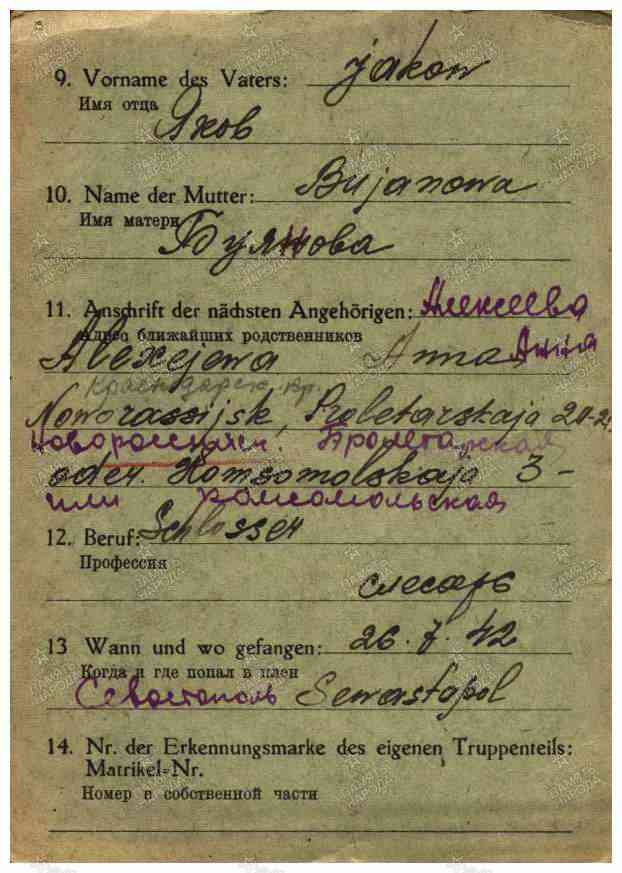 9. Vorname des Vaters: Jakow
Имя отца
Яков
10. Name der Mutter: Bujanowa
Имя матери
Буянова
11. Anschrift der nächsten Angehörigen: Алексеева
Адрес ближайших родственников
Alexejewa Anna Анна
Краснодарск. кр.
Noworassijsk, Proletarskaja 20-2
Новороссийск. Пролетарская
oder Komsomolskaja 3-
или Комсомольская
12. Beruf: Schlosser
Профессия
слесарь
13 Wann und wo gefangen: 26.7.42
Когда и где попал в плен
Севостополь Sewastopol
14. Nr. der Erkennungsmarke des eigenen Truppenteils:
Matrikel=Nr.
Номер в собственной части